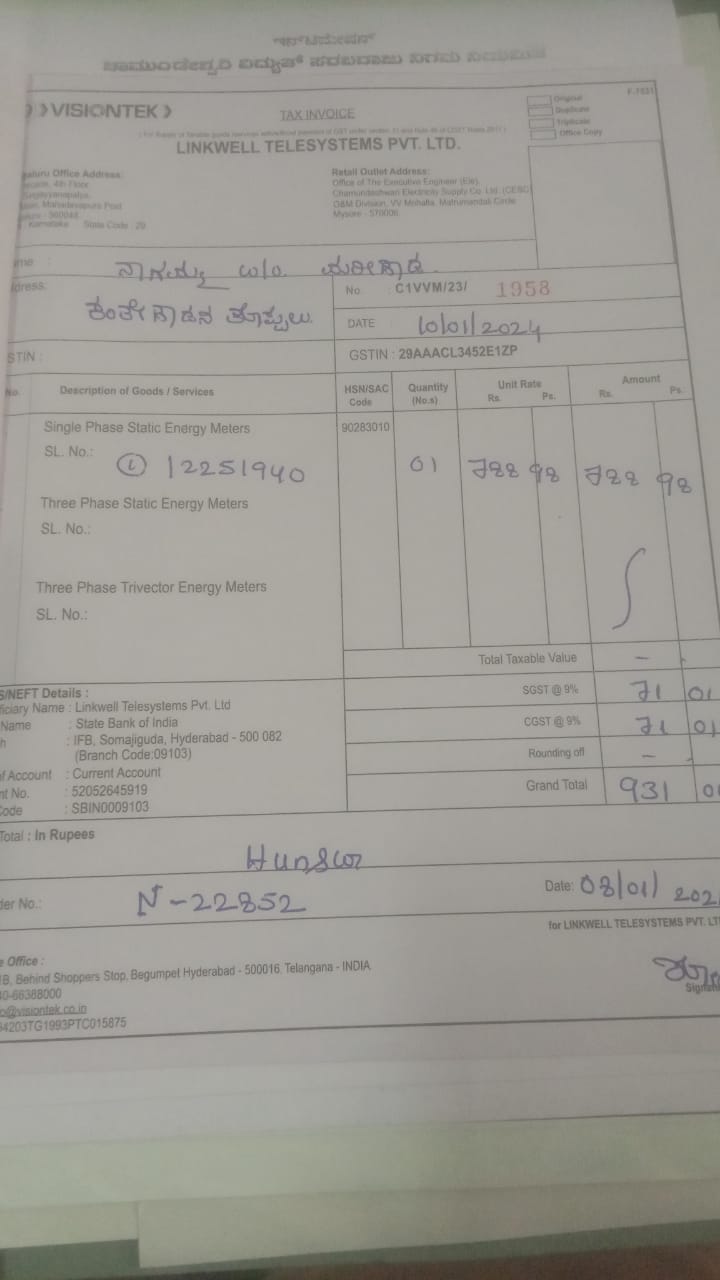 ಚಾಮುಂಡೇಶ್ವರಿ ವಿದ್ಯುತ್ ಸರಬರಾಜು ನಿಗಮ ನಿಯಮಿತ
VISIONTEK
TAX INVOICE
F-7031
Original
Duplicate
Triplicate
Office Copy
LINKWELL TELESYSTEMS PVT. LTD.
Office Address:
4th Floor
Mahadevapura Post
560048
Karnataka State Code : 29
Retail Outlet Address:
Office of The Executive Engineer (Ele),
Chamundeshwari Electricity Supply Co. Ltd. (CESC)
O&M Division, VV Mohalla, Matrumandali Circle
Mysore - 570006
ನಾಗಮ್ಮ w/o.
No. : C1VVM/23/ 1958
DATE 10/01/2024
STIN :
GSTIN : 29AAACL3452E1ZP
No. Description of Goods / Services HSN/SAC Code Quantity (No.s) Unit Rate Rs. Ps. Amount Rs. Ps.
Single Phase Static Energy Meters 90283010
SL. No.: ① 12251940 01 788 98 788 98
Three Phase Static Energy Meters
SL. No.:
Three Phase Trivector Energy Meters
SL. No.:
Total Taxable Value -
SGST @ 9% 71 01
CGST @ 9% 71 01
Rounding off -
Grand Total 931 0
S/NEFT Details :
ficiary Name : Linkwell Telesystems Pvt. Ltd
Name : State Bank of India
h : IFB, Somajiguda, Hyderabad - 500 082
(Branch Code:09103)
f Account : Current Account
nt No. : 52052645919
Code : SBIN0009103
Total : In Rupees
Hunsur
der No.: N-22852
Date: 08/01/ 202
for LINKWELL TELESYSTEMS PVT. LT
e Office :
B, Behind Shoppers Stop, Begumpet Hyderabad - 500016. Telangana - INDIA
40-66388000
o@visiontek.co.in
4203TG1993PTC015875